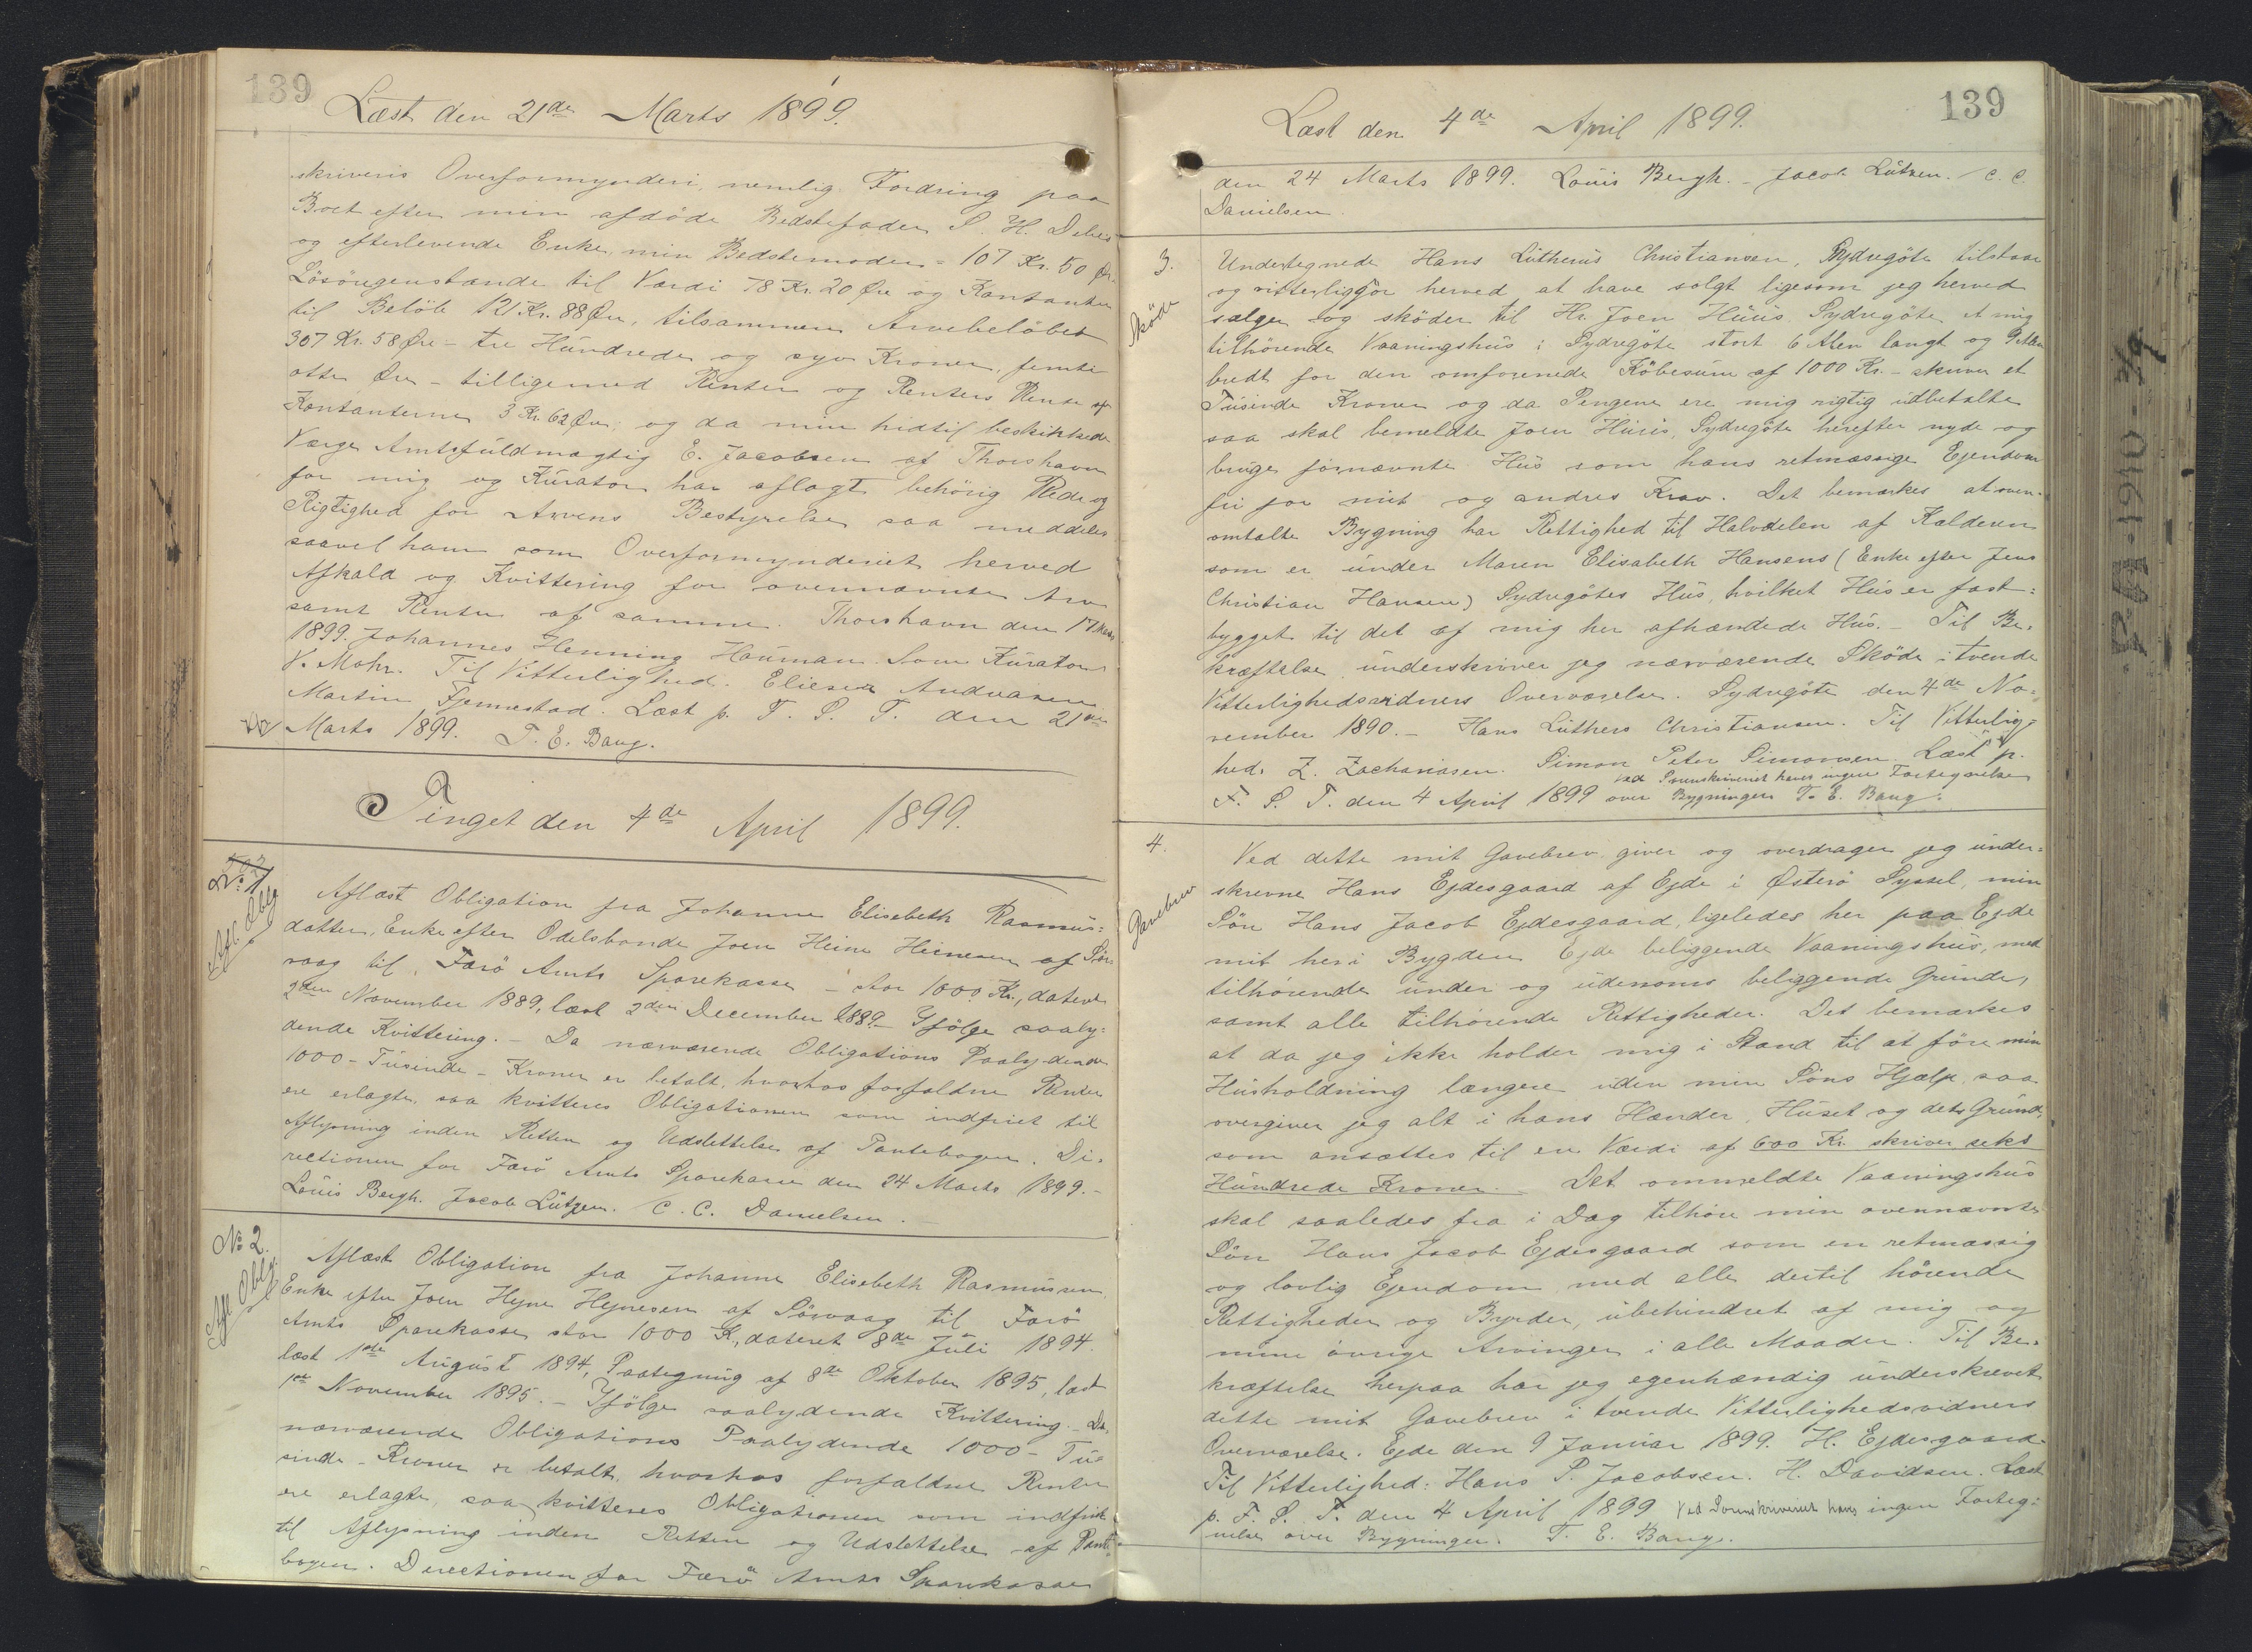 139
Læst den 21de Marts 1899.
skriveris Overformynderi, nemlig Fordring paa
Boet efter min afdöde Bedstefader S. H. Debes
og efterlevende Enke, min Bedstemoder = 107 Kr. 50 Øre
Lösöregenstande til Værdi 78 Kr. 20 Øre og Kontanter
til Belöb 121 Kr. 88 Øre, tilsammen Arvebelöbet
307 Kr. 58 Øre - tre Hundrede og syv Kroner, femti
otte Øre - tilligemed Renter og Renters Rente af
Kontanterne 3 Kr. 62 Øre; og da min hidtil beskikkede
Værge Amtsfuldmægtig E. Jacobsen af Thorshavn
for mig og Kurator har aflagt behörig Rede og
Rigtighed for Arvens Bestyrelse saa meddeles
saavel ham som Overformynderiet herved
Afkald og Kvittering for ovennævnte Arv
samt Renter af samme. Thorshavn den 17 Marts
1899. Johannes Henning Hauman. Som Kurator
V. Mohr. Til Vitterlighed. Elieser Andreasen
Martin Fjennestad. Læst p. F. S. T. den 21de
Marts 1899. T. E. Bang.
Tinget den 4de April 1899.
No 1
Afl. Oblg
Aflæst Obligation fra Johanne Elisebeth Rasmus=
datter, Enke efter Odelsbonde Joen Heine Heinesen af Sör=
vaag til Færö Amts Sparekasse - stor 1000 Kr., dateret
2den November 1889, læst 2den December 1889. Ifölge saaly=
dende Kvittering. - Da nærværende Obligations Paalydende
1000 - Tusinde - Kroner er betalt, hvorhos forfaldne Renter
ere erlagte, saa kvitteres Obligationen som indfriet til
Aflysning inden Retten og Udslettelse af Pantebogen. Di=
rectionen for Færö Amts Sparekasse den 24 Marts 1899. -
Louis Bergh. Jacob Lützen. C. C. Danielsen.
No 2.
Afl Oblg.
Aflæst Obligation fra Johanne Elisebeth Rasmussen
Enke efter Joen Hejne Hejnesen af Sörvaag til Færö
Amts Sparekasse stor 1000 K., dateret 8de Juli 1894.
læst 1ste August 1894, Paategning af 8de Oktober 1895, læst
1ste November 1895. - Ifölge saalydende Kvittering. - Da
nærværende Obligations Paalydende 1000 - Tu=
sinde - Kroner er betalt, hvorhos forfaldne Renter
ere erlagte, saa kvitteres Obligationen som indfriet
til Aflysning inden Retten og Udslettelse af Pante
bogen. Directionen for Færö Amts Sparekasse
139
Læst den 4de April 1899.
den 24 Marts 1899. Louis Bergh. - Jacob Lützen. C. C.
Danielsen.
3.
Sköde
Undertegnede Hans Lutherus Christiansen, Sydregöte tilstaar
og vitterliggör herved at have solgt ligesom jeg herved
sælger og sköder til Hr. Joen Huus, Sydregöte et mig
tilhörende Vaaningshus i Sydregöte stort 6 Alen langt og 9 Alen
bredt for den omforenede Köbesum af 1000 Kr. - skriver et
Tusinde Kroner og da Pengene ere mig rigtig udbetalte
saa skal bemeldte Joen Huus, Sydregöte herefter nyde og
bruge fornævnte Hus som hans retmæssige Ejendom
fri for mit og andres Krav. Det bemærkes at oven=
omtalte Bygning har Rettighed til Halvdelen af Kalderen
som er under Maren Elisabeth Hansens (Enke efter Jens
Christian Hansen) Sydregötes Hus, hvilket Hus er fast=
bygget til det af mig her afhændede Hus. - Til Be=
kræftelse underskriver jeg nærværende Sköde i tvende
Vitterlighedsvidners Overværelse. Sydregöte den 4de No=
vember 1890. - Hans Luthers Christiansen. Til Vitterlig=
hed: Z. Zachariasen. Simon Peter Simonsen Læst p.
F. S. T. den 4 April 1899 Ved Sorenskriveriet haves ingen Fortegnelse over Bygningen T. E. Bang.
4.
Gavebrev
Ved dette mit Gavebrev giver og overdrager jeg under=
skrevne Hans Ejdesgaard af Ejde i Østerö Syssel, min
Sön Hans Jacob Ejdesgaard, ligeledes her paa Ejde
mit her i Bygden Ejde beliggende Vaaningshus, med
tilhörende under og udenoms beliggende Grunde,
samt alle tilhörende Rettigheder. Det bemærkes
at da jeg ikke holder mig i Stand til at före min
Husholdning længere uden min Söns Hjælp, saa
overgiver jeg alt i hans Hænder, Huset og dets Grund,
som ansættes til en Værdi af 600 Kr. skriver seks
Hundrede Kroner. - Det ommeldte Vaaningshus
skal saaledes fra i Dag tilhöre min ovennævnte
Sön Hans Jacob Ejdesgaard som en retmæssig
og lovlig Ejendom med alle dertil hörende
Rettigheder og Byrder, ubehindret af mig og
mine övrige Arvinger i alle Maader. Til Be=
kræftelse herpaa har jeg egenhændig underskrevet
dette mit Gavebrev i tvende Vitterlighedsvidners
Overværelse. Ejde den 9 Januar 1899. H. Ejdesgaard.
Til Vitterlighed: Hans P. Jacobsen. H. Davidsen. Læst
p. F. S. T. den 4 April 1899 Ved Sorenskriveriet haves ingen Forteg=
nelse over Bygninger. T. E. Bang.